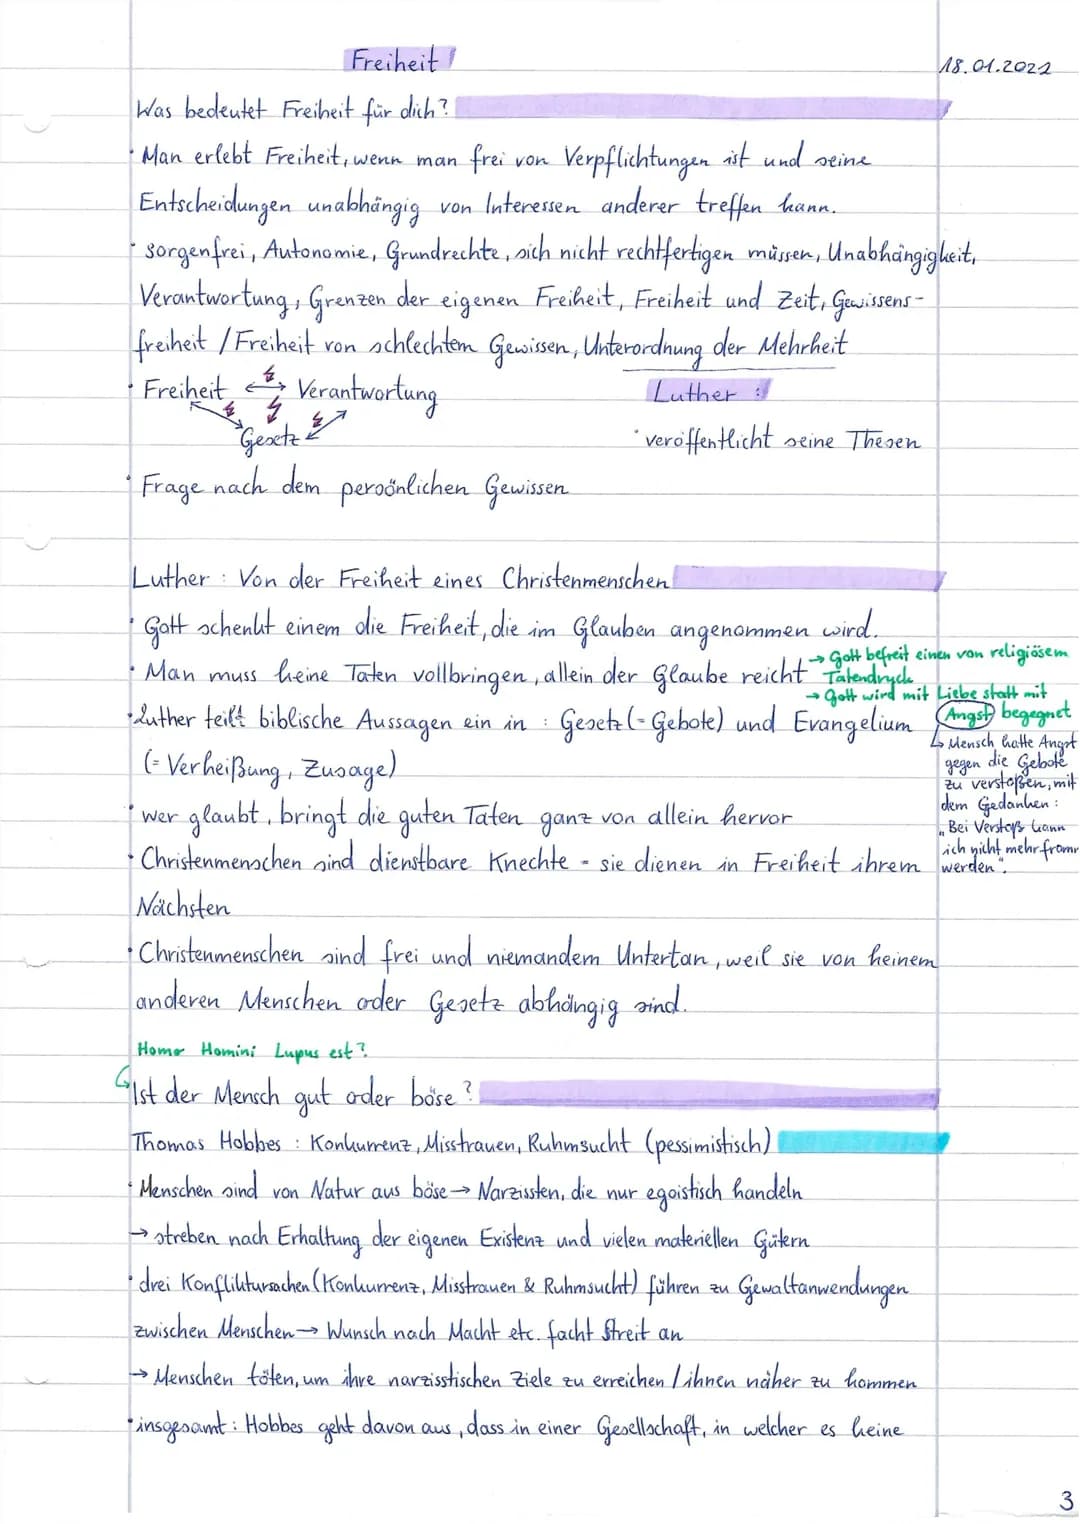 Freiheit
18.01.2022
Was bedeutet Freiheit für dich?
• Man erlebt Freiheit, wenn man frei von Verpflichtungen ist und seine
Entscheidungen unabhängig von Interessen anderer treffen kann.
• sorgenfrei, Autonomie, Grundrechte, sich nicht rechtfertigen müssen, Unabhängigkeit,
Verantwortung, Grenzen der eigenen Freiheit, Freiheit und Zeit, Gewissens-
freiheit / Freiheit von schlechtem Gewissen, Unterordnung der Mehrheit
• Freiheit ↔ Verantwortung
Gesetz
Luther :
• veröffentlicht seine Thesen
• Frage nach dem persönlichen Gewissen
Luther : Von der Freiheit eines Christenmenschen
• Gott schenkt einem die Freiheit, die im Glauben angenommen wird.
• Man muss keine Taten vollbringen, allein der Glaube reicht
→ Gott befreit einen von religiösem
Tatendruck
→ Gott wird mit Liebe statt mit
Angst begegnet
↳ Mensch hatte Angst
gegen die Gebote
zu verstoßen, mit
dem Gedanken :
„Bei Verstoß kann
ich nicht mehr fromm
werden".
• Luther teilt biblische Aussagen ein in : Gesetz (= Gebote) und Evangelium
(= Verheißung, Zusage)
• wer glaubt, bringt die guten Taten ganz von allein hervor
• Christenmenschen sind dienstbare Knechte - sie dienen in Freiheit ihrem
Nächsten
• Christenmenschen sind frei und niemandem Untertan, weil sie von keinem
anderen Menschen oder Gesetz abhängig sind.
Homo Homini Lupus est?
↳ Ist der Mensch gut oder böse?
Thomas Hobbes : Konkurrenz, Misstrauen, Ruhmsucht (pessimistisch)
• Menschen sind von Natur aus böse → Narzissten, die nur egoistisch handeln
→ streben nach Erhaltung der eigenen Existenz und vielen materiellen Gütern
• drei Konfliktursachen (Konkurrenz, Misstrauen & Ruhmsucht) führen zu Gewaltanwendungen
zwischen Menschen → Wunsch nach Macht etc. facht Streit an
→ Menschen töten, um ihre narzisstischen Ziele zu erreichen / ihnen näher zu kommen
• insgesamt : Hobbes geht davon aus, dass in einer Gesellschaft, in welcher es keine
3